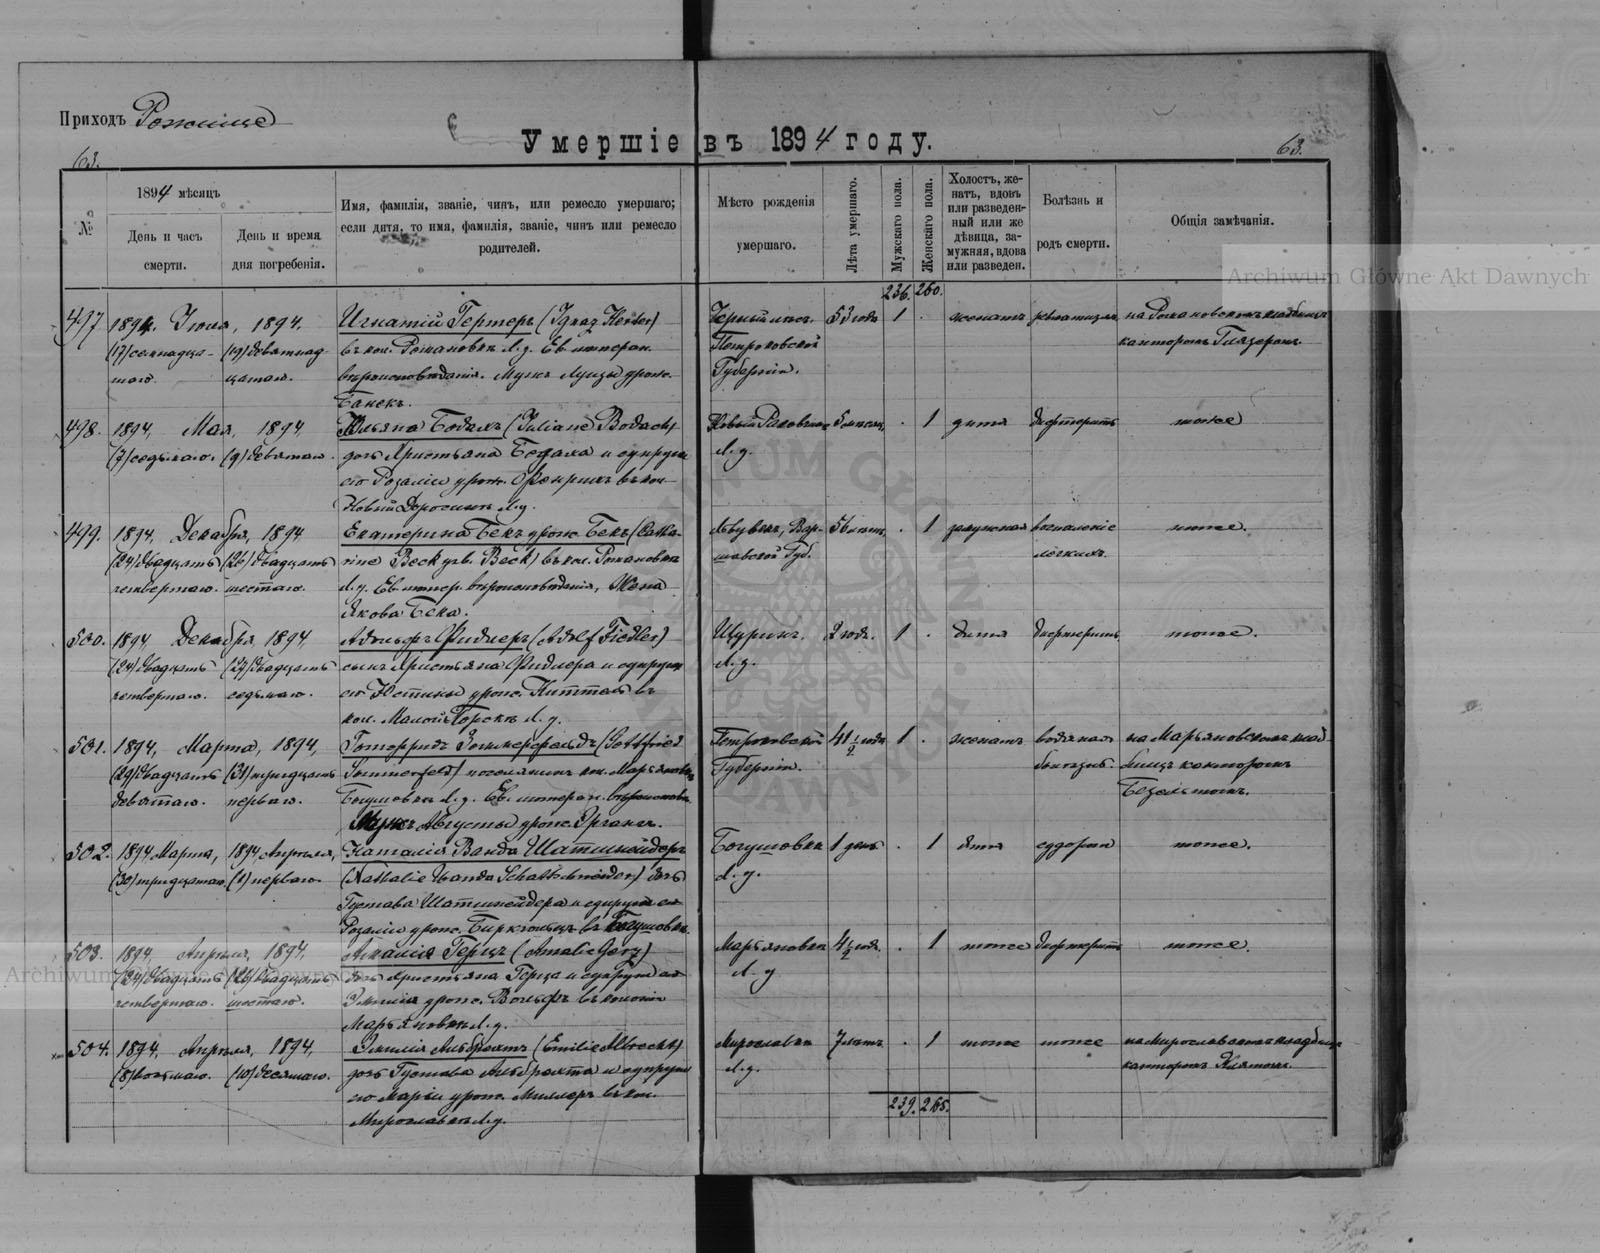 Приходъ Рожище
Умершіе въ 1894 году.
63.
63.
№
1894 мѣсяцъ
День и часъ смерти.
День и время дня погребенія.
Имя, фамилія, званіе, чинъ, или ремесло умершаго; если дитя, то имя, фамилія, званіе, чинъ или ремесло родителей.
Мѣсто рожденія умершаго.
Лѣта умершаго.
Мужскаго пола.
Женскаго пола.
Холостъ, женатъ, вдовъ или разведенный или же дѣвица, замужняя, вдова или разведен.
Болѣзнь и родъ смерти.
Общія замѣчанія.
236. 260.
497 1894. Іюня, 1894. Игнатій Гертеръ (Ignaz Herter) 53 года 1 . женатъ ревматизмъ на Романовскомъ кладбищѣ
(17) семнадца- (19) девятнад- въ кол. Романовкѣ Л.у. Ев. лютеран. Петроковской канторомъ Глязеромъ.
таго. цатаго. вѣроисповѣданія. Мужъ Луизы урож. Губерніи.
498. 1894, Мая, 1894, Юльяна Бодахъ (Juliane Bodach) 5 мѣсяц. . 1 дитя дифтеритъ тоже
(7) седьмаго. (9) девятаго. дочь Христьяна Бодаха и супруги Л.у.
его Розаліи урож. въ кол.
Новый Доросинъ Л.у.
499. 1894, Декабря, 1894 Екатерина Бекъ урож. Бекъ (Catha- Вар- 56 лѣтъ . 1 замужняя воспаленіе тоже.
(24) двадцать (26) двадцать rine Beck geb. Beck) въ кол. Романовкѣ шавской Губ. легкихъ.
четвертаго. шестаго. Л.у. Ев. лютер. вѣроисповѣданія, Жена
Якова Бека.
500. 1894 Декабря, 1894, Адольфъ Фидлеръ (Adolf Fiedler) Щуринъ 2 года. 1 . дитя дифтеритъ тоже.
(24) двадцать (27) двадцать сынъ Христьяна Фидлера и супруги Л.у.
четвертаго. седьмаго. его Юстины урож. Киттель въ
кол. Малой Горкѣ Л.у.
501. 1894, Марта, 1894, Готфридъ Зоммерфельдъ (Gottfried Петроковской 41 1/2 года 1 . женатъ водяная на Марьяновскомъ клад-
(29) двадцать (31) тридцать Sommerfeld) поселянинъ кол. Марьяновки Губерніи. болѣзнь. бищѣ канторомъ
девятаго. перваго. Богумовки Л.у. Ев. лютеран. вѣроисповѣд.
Мужъ Августы урож.
502. 1894 Марта, 1894, Апрѣля, Наталія Ванда Шатшнейдеръ Богушовка 1 день . 1 дитя судороги тоже.
(30) тридцатаго (1) перваго. (Nathalie Wanda Schattschneider) дочь Л.у.
Густава Шатшнейдера и супруги его
Розаліи урож. Бирхгольцъ въ Богушовкѣ.
503. 1894, Апрѣля, 1894, Амалія Герцъ (Amalie Gerz) Марьяновка 4 1/2 года. . 1 тоже дифтеритъ тоже.
(24) двадцать (26) двадцать дочь Христьяна Герца и супруги его Л.у
четвертаго. шестаго. Эмиліи урож. Вольфъ въ колоніи
Марьяновкѣ Л.у.
504. 1894, Апрѣля, 1894, Эмилія Альбрехтъ (Emilie Albrecht) Мирославка 7 лѣтъ . 1 тоже тоже на Мирославскомъ кладбищѣ
(8) восьмаго. (10) десятаго. дочь Густава Альбрехта и супруги Л.у. канторомъ
его Маріи урож. Миллеръ въ кол.
Мирославкѣ Л.у.
239. 265.
Archiwum Główne Akt Dawnych